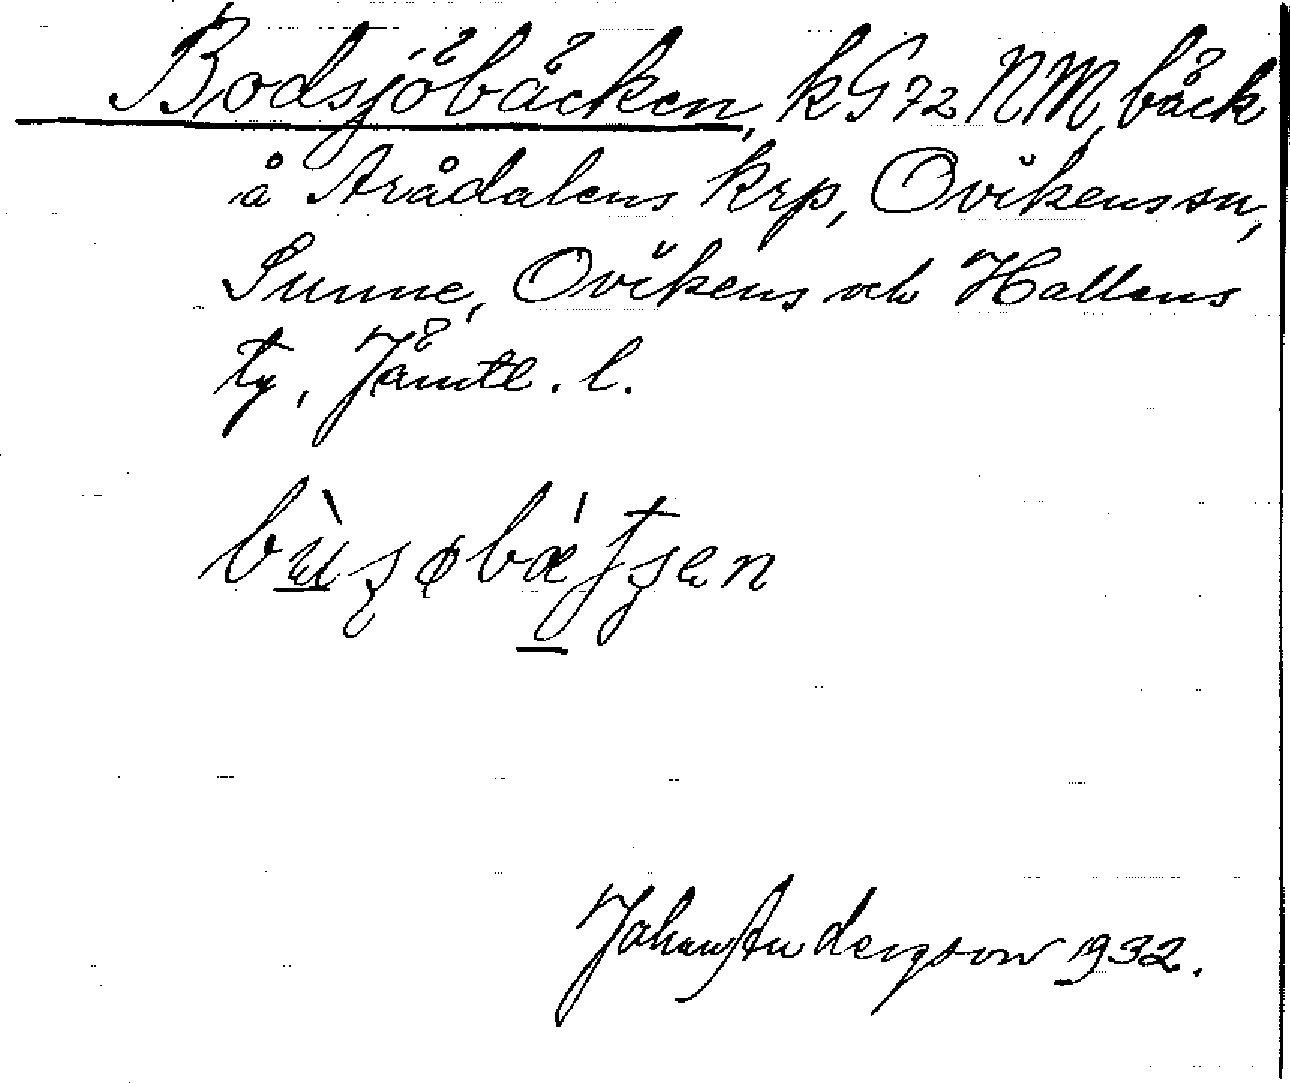 Bodsjöbäcken, k G 72 NM, bäck
å Arådalens krp, Ovikens sn,
Sunne, Ovikens och Hallens
tg, Jämtl. l.
Johan Anderson 1932.